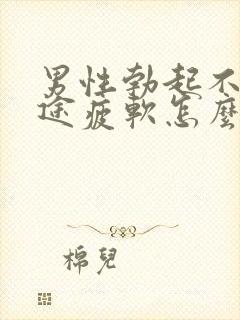 男性勃起不
途疲軟怎麼
棉兒